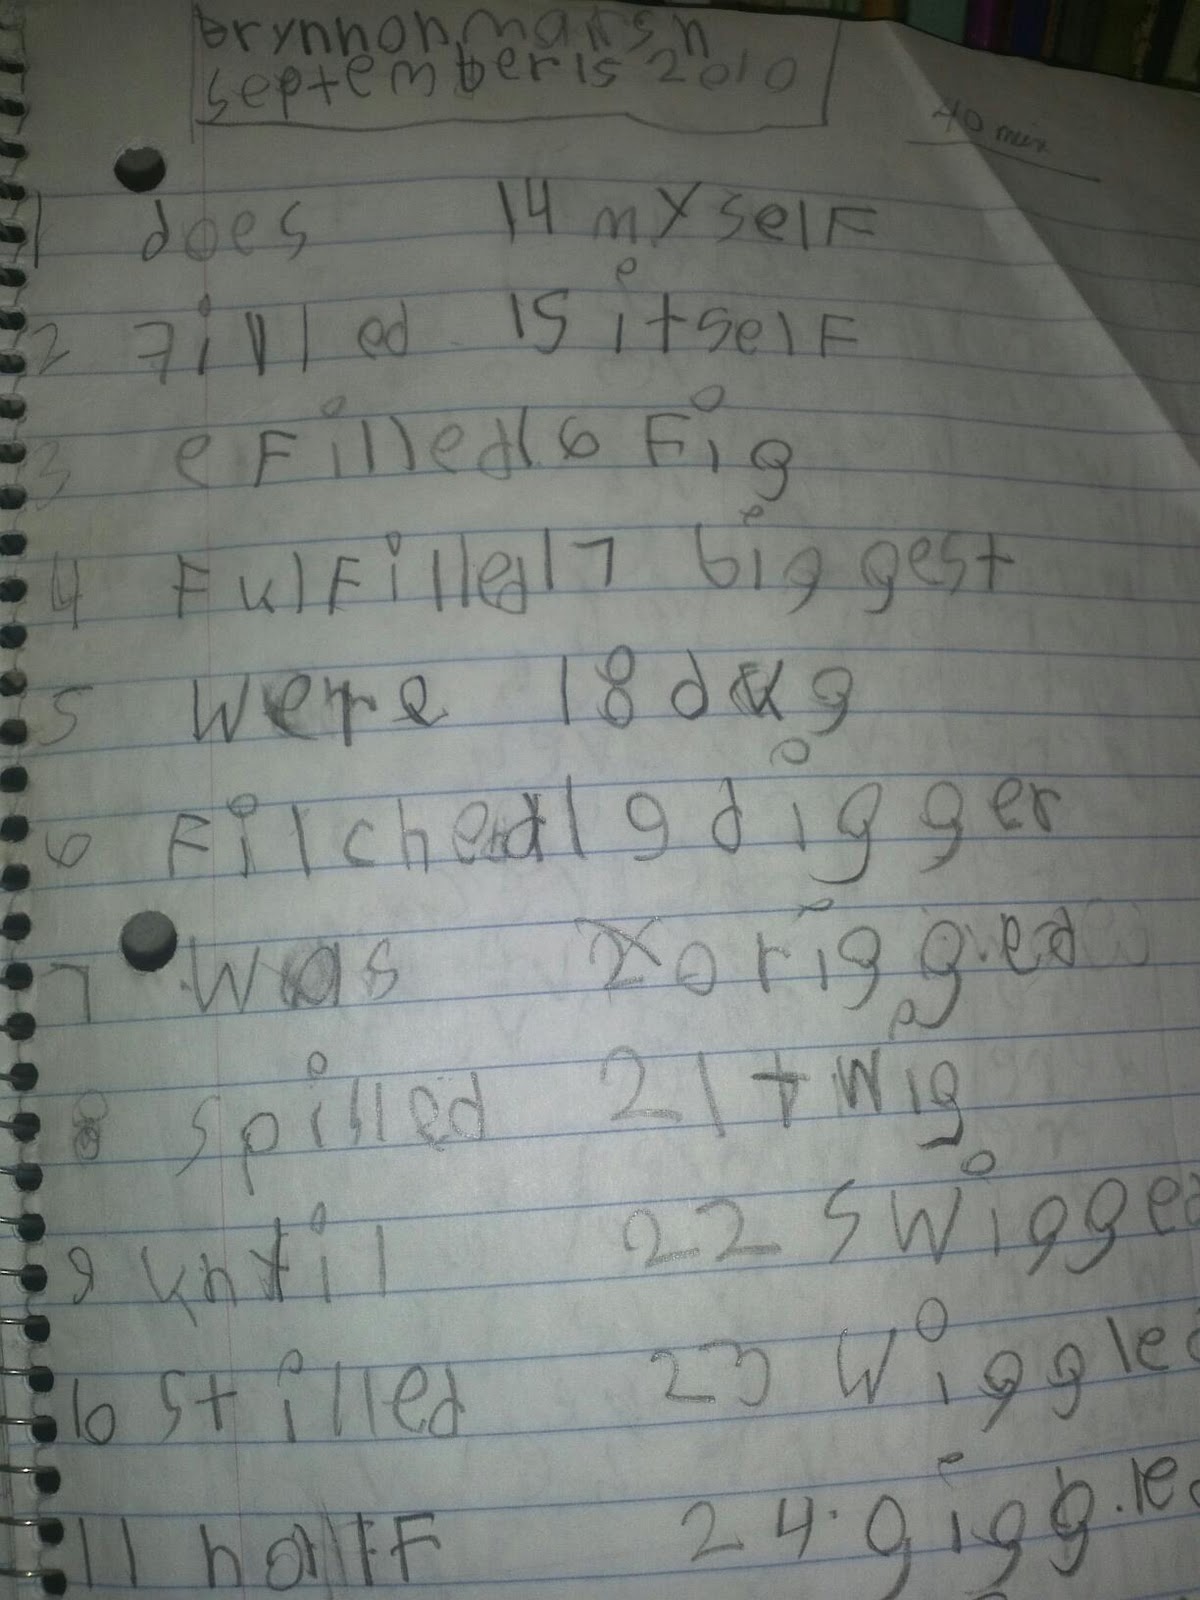 brynnon marsh
september 15 2010
40 min
1 does 14 myself
2 Filled 15 itself
3 eFilled 16 Fig
4 FulFilled 17 biggest
5 were 18 dug
6 Filched 19 digger
7 was 20 rigged
8 spilled 21 twig
9 until 22 swigged
10 stilled 23 wiggled
11 half 24. giggled